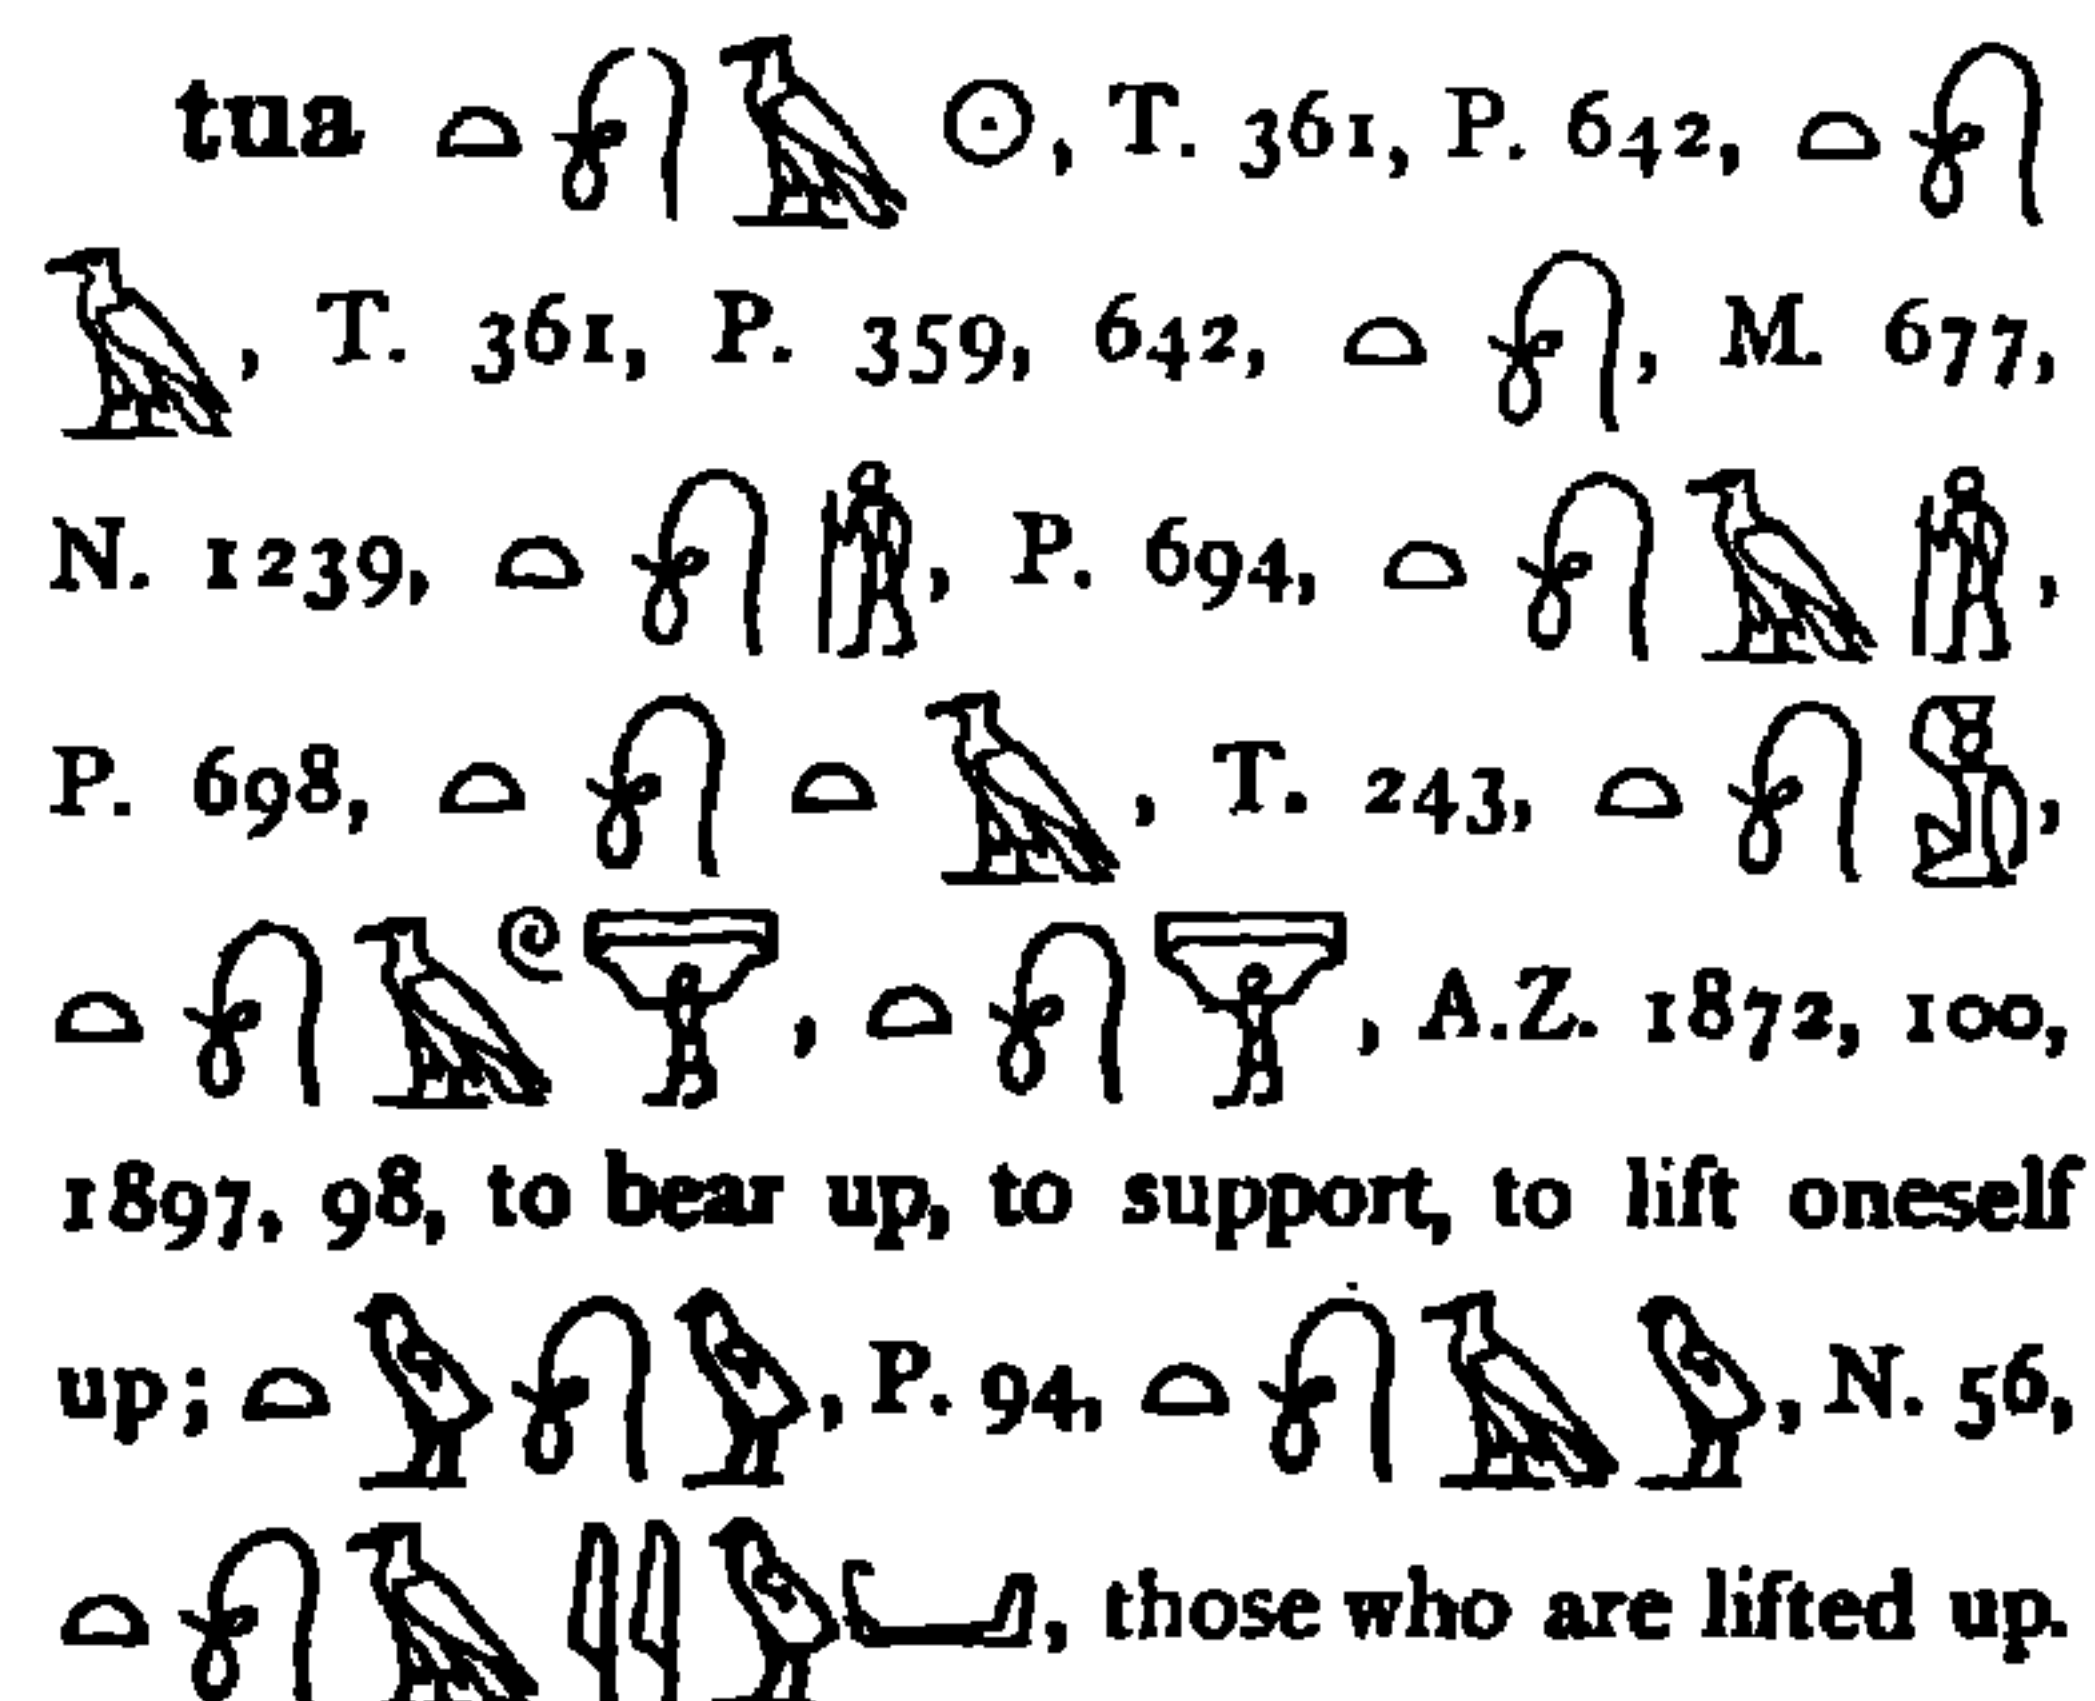 tua 𓏏𓍯𓄿 𓇳, T. 361, P. 642, 𓏏𓍯
𓄿, T. 361, P. 359, 642, 𓏏𓍯, M. 677,
N. 1239, 𓏏𓍯, P. 694, 𓏏𓍯𓄿,
P. 698, 𓏏𓍯𓏏𓄿, T. 243, 𓏏𓍯𓀋,
𓏏𓍯𓄿𓏲, 𓏏𓍯, A.Z. 1872, 100,
1897, 98, to bear up, to support, to lift oneself
up; 𓏏𓅱𓍯𓅱, P. 94, 𓏏𓍯𓄿𓅱, N. 56,
𓏏𓍯𓄿𓇋𓇋𓅱, those who are lifted up.